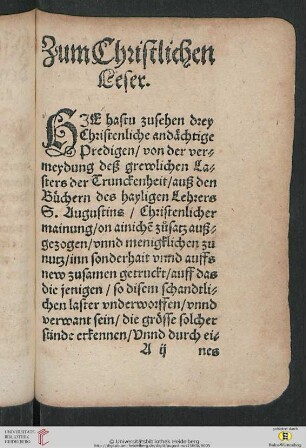 Zum Christlichen
Leser.
HIE hastu zusehen drey
Christenliche andächtige
Predigen/ von der ver-
meydung deß grewlichen La-
sters der Trunckenheit/ auß den
Büchern des hayligen Lehrers
S. Augustins/ Christenlicher
mainung/ on ainichē zůsatz auß-
gezogen/ vnnd menigklichen zu
nutz/ inn sonderhait vnnd auffs
new zusamen getruckt/ auff das
die jenigen/ so disem schandtli-
chen laster vnderworffen/ vnnd
verwant sein/ die grösse solcher
sünde erkennen/ Vnnd durch ei-
A ij nes
UNIVERSITÄTS-
BIBLIOTHEK
HEIDELBERG
© Universitätsbibliothek Heidelberg